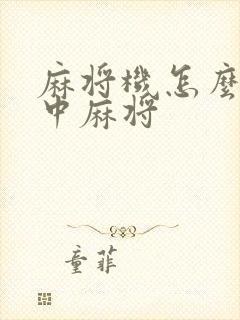 麻将機怎麼
中麻将
童菲